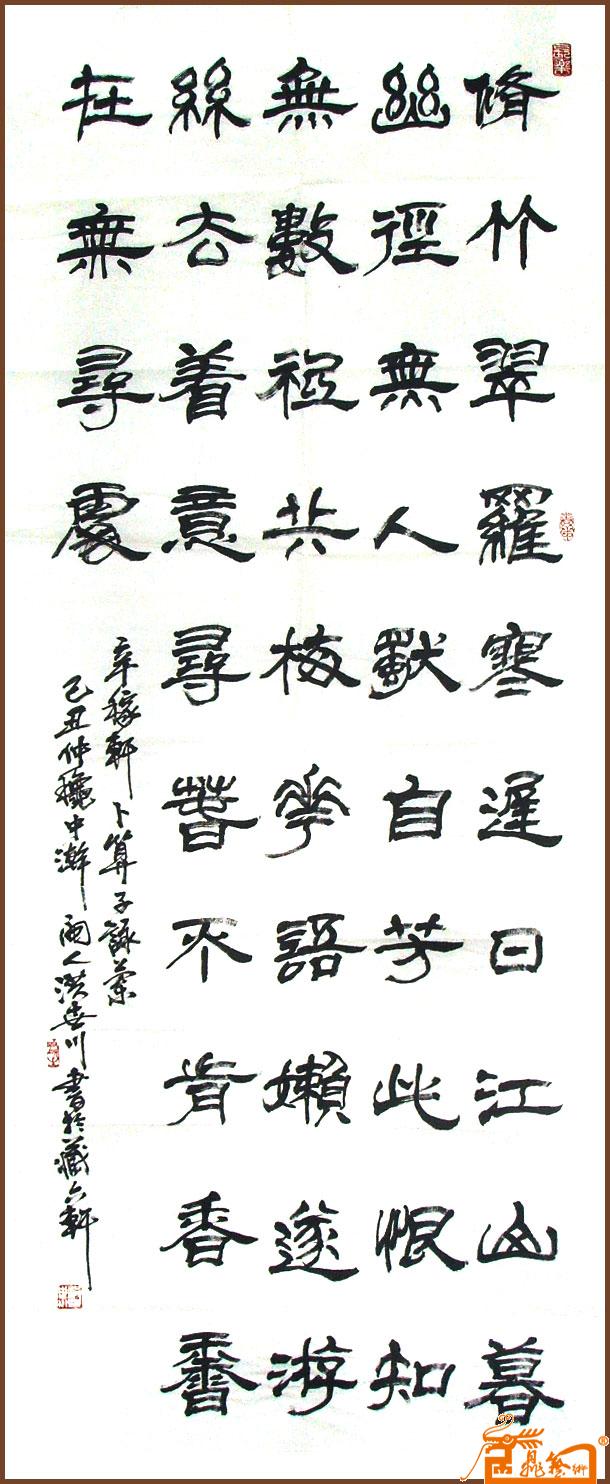 脩竹翠羅寒遲日江山暮
幽徑無人獨自芳此恨知
無數祗共梅花語嬾逐游
絲去着意尋春不肯香香
在無尋處
辛稼軒卜算子詠蘭
己丑仲穐中澣閩人洪川書於藏六軒